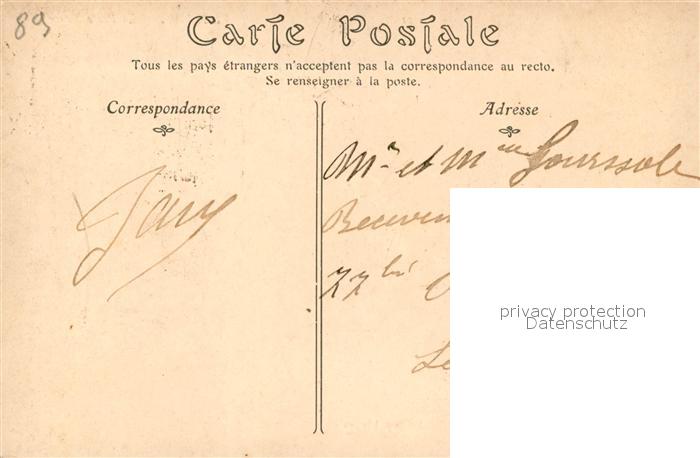 89
Carte Postale
Tous les pays étrangers n'acceptent pas la correspondance au recto.
Se renseigner à la poste.
Correspondance
Adresse
Mr et Mme
77 bis
privacy protection
Datenschutz